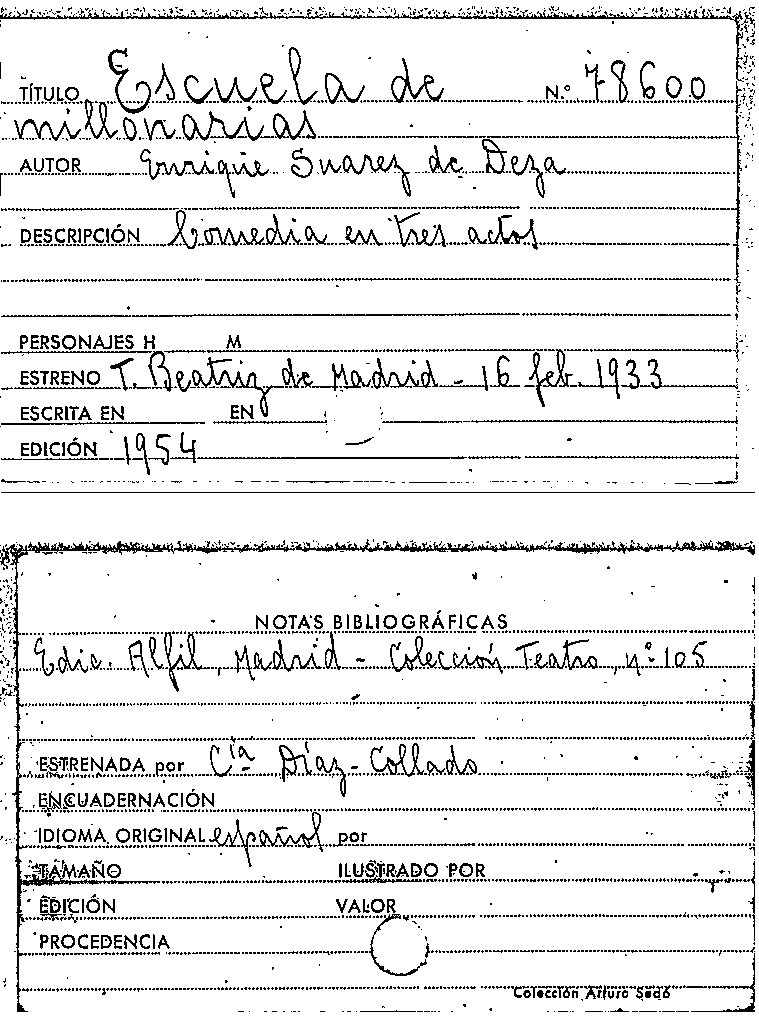 TÍTULO Escuela de N.º 78600
millonarias
AUTOR Enrique Suarez de Deza
DESCRIPCIÓN Comedia en tres actos
PERSONAJES H M
ESTRENO T. Beatriz de Madrid - 16 feb. 1933
ESCRITA EN EN
EDICIÓN 1954
NOTAS BIBLIOGRÁFICAS
Edic. Alfil, Madrid - Colección Teatro, nº 105
ESTRENADA por Cía Díaz-Collado
ENCUADERNACIÓN
IDIOMA ORIGINAL español por
TAMAÑO ILUSTRADO POR
EDICIÓN VALOR
PROCEDENCIA
Colección Arturo Sedó